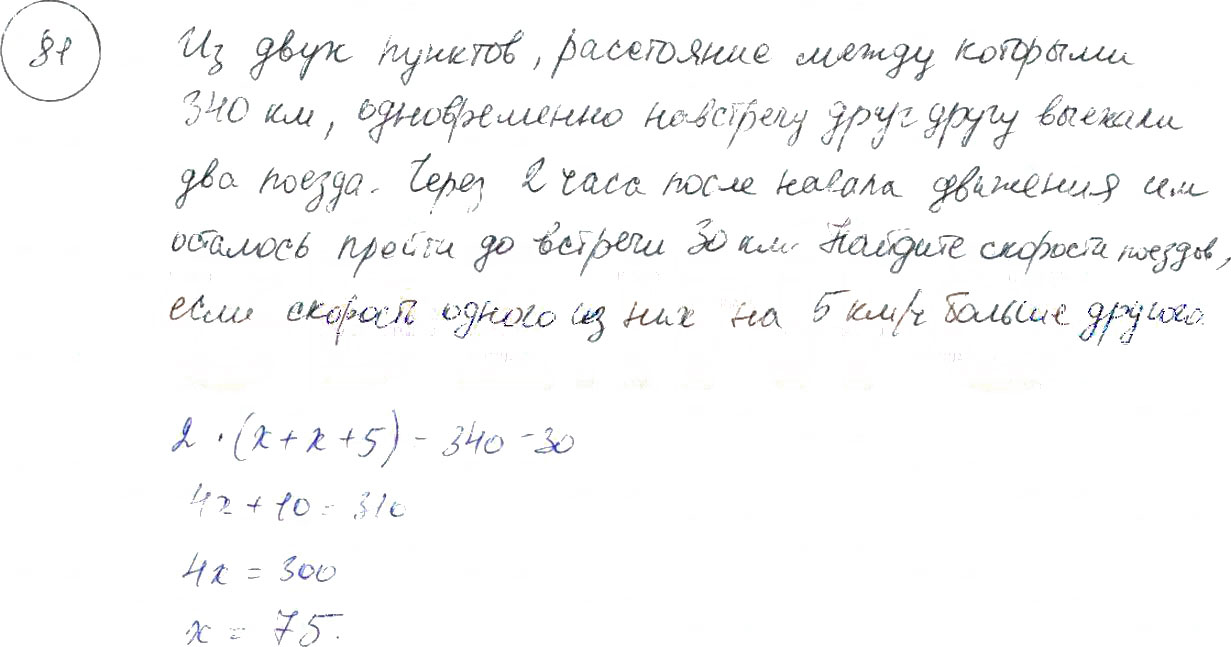 81
Из двух пунктов, расстояние между которыми
340 км, одновременно навстречу друг другу выехали
два поезда. Через 2 часа после начала движения им
осталось пройти до встречи 30 км. Найдите скорости поездов,
если скорость одного из них на 5 км/ч больше другого
2 · (x + x + 5) = 340 - 30
4x + 10 = 310
4x = 300
x = 75.